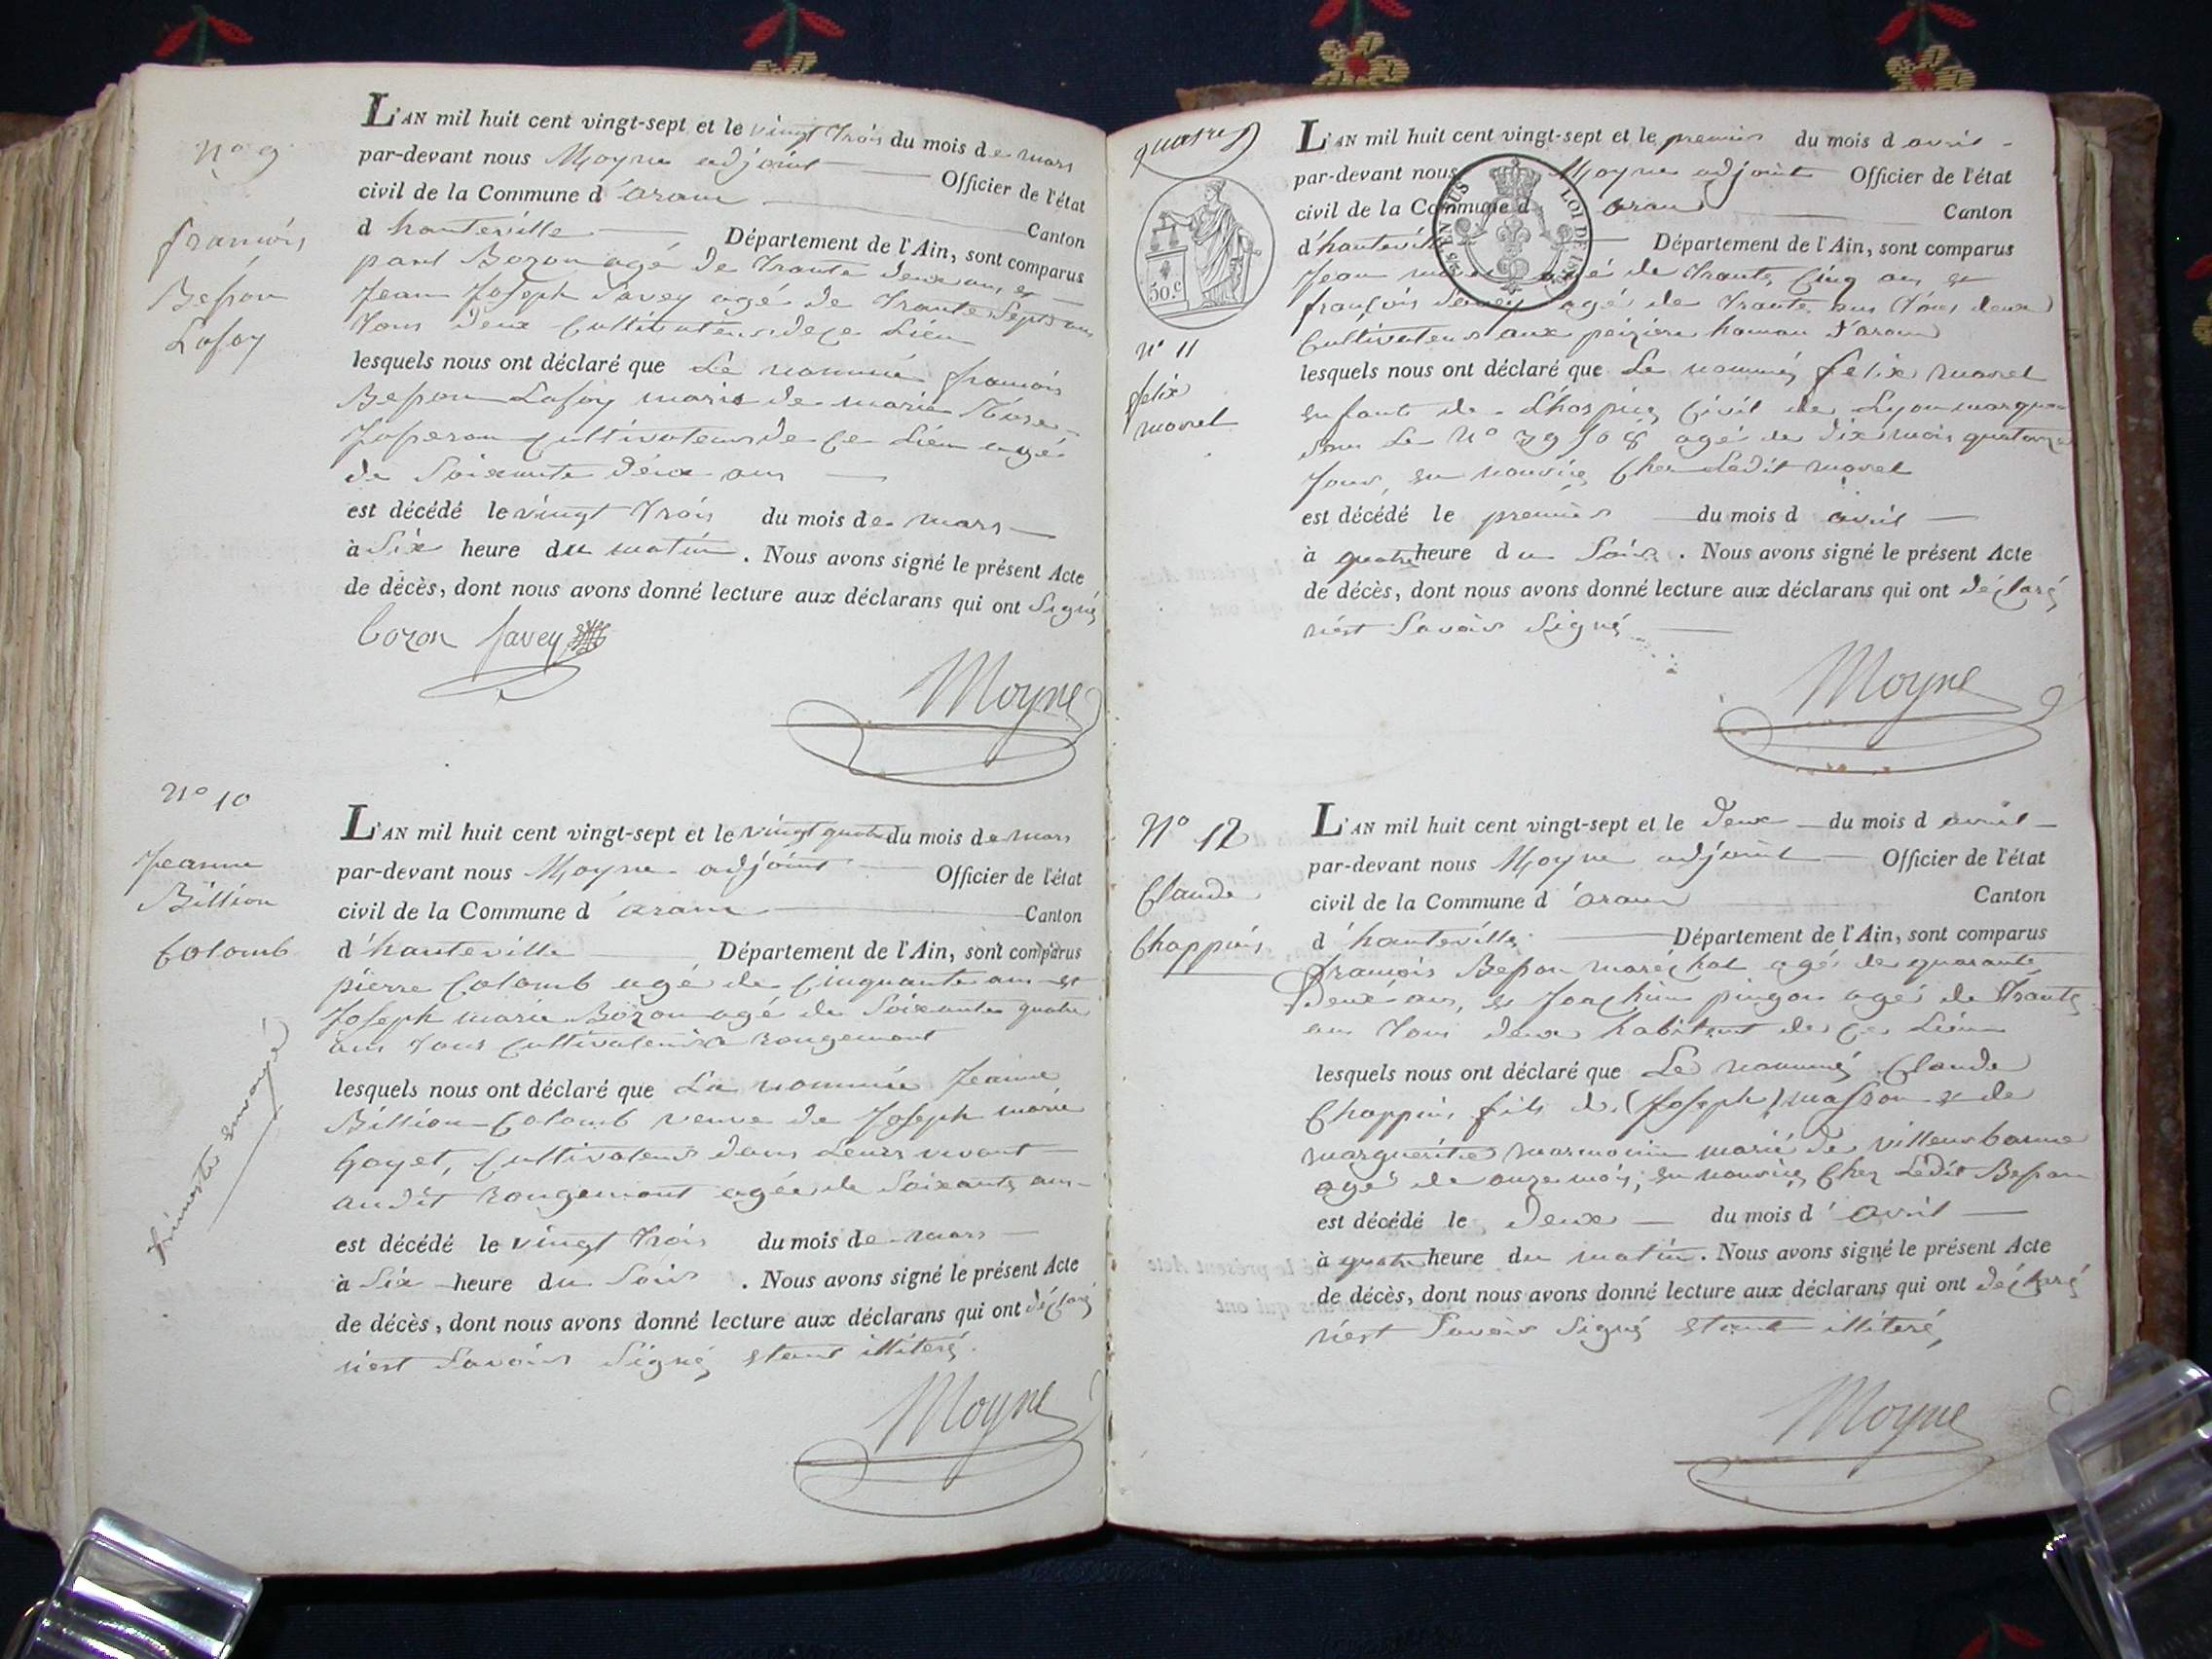 N° 9
françois
Besson
Lafoy
L'AN mil huit cent vingt-sept et le vingt trois du mois de mars
par-devant nous Moyne adjoint Officier de l'état
civil de la Commune d'aranc
Canton
d hauteville Département de l'Ain, sont comparus
paul Bozon agé de trante deux ans et
Jean Joseph Savey agé de trante Sept ans
tous deux Cultivateurs de ce Lieu
lesquels nous ont déclaré que Le nommé françois
Besson Lafoy maris de marie
Josseron Cultivateur de ce Lieu agé
de Soixante deux ans
est décédé le vingt trois du mois de mars
à Six heure du matin. Nous avons signé le présent Acte
de décès, dont nous avons donné lecture aux déclarans qui ont Signé
bozon Savey
Moyne
N° 10
Jeanne
Billion
Colomb
trimestre envoyé
L'AN mil huit cent vingt-sept et le vingt quatre du mois de mars
par-devant nous Moyne adjoint Officier de l'état
civil de la Commune d'aranc Canton
d'hauteville Département de l'Ain, sont comparus
pierre Colomb agé de Cinquante ans et
Joseph marie Bozon agé de Soixante quatre
ans tous Cultivateurs a Rougemont
lesquels nous ont déclaré que La nommée Jeanne
Billion Colomb veuve de Joseph marie
Goyet, Cultivateurs dans Leurs vivant
audit Rougemont agée de Soixante ans
est décédé le vingt trois du mois de mars
à Six heure du Soir. Nous avons signé le présent Acte
de décès, dont nous avons donné lecture aux déclarans qui ont déclaré
n'est Savoir Signé étant illiteré.
Moyne
quatre
50.c
N° 11
félix
morel
L'AN mil huit cent vingt-sept et le premier du mois d avril
par-devant nous Moyne adjoint Officier de l'état
civil de la Commune d aranc Canton
d'hauteville Département de l'Ain, sont comparus
EN SUS
LOI DE
Jean agé de trante Cinq ans et
françois Savey agé de trante ans tous deux
Cultivateurs aux peizière hamau d'aranc
lesquels nous ont déclaré que Le nommé felix morel
enfant de Lhospice Civil de Lyon marque
sous Le N° 39508 agé de dix mois quatorze
Jours, en nourice Chez Ledit morel
est décédé le premier du mois d avril
à quatre heure du Soir. Nous avons signé le présent Acte
de décès, dont nous avons donné lecture aux déclarans qui ont déclaré
n'est Savoir Signé
Moyne
N° 12
Claude
Chappuis
L'AN mil huit cent vingt-sept et le deux du mois d avril
par-devant nous Moyne adjoint Officier de l'état
civil de la Commune d'aranc Canton
d'hauteville Département de l'Ain, sont comparus
françois Besson maréchal agé de quarante
deux ans, et Joachim pingon agé de trante
ans tous deux habitant de ce Lieu
lesquels nous ont déclaré que Le nommé Claude
Chappuis fils de (Joseph) masson et de
marguerite marié de villeurbanne
agé de onze mois, en nourice Chez Ledit Besson
est décédé le deux du mois d'avril
à quatre heure du matin. Nous avons signé le présent Acte
de décès, dont nous avons donné lecture aux déclarans qui ont déclaré
n'est Savoir Signé étant illiteré,
Moyne